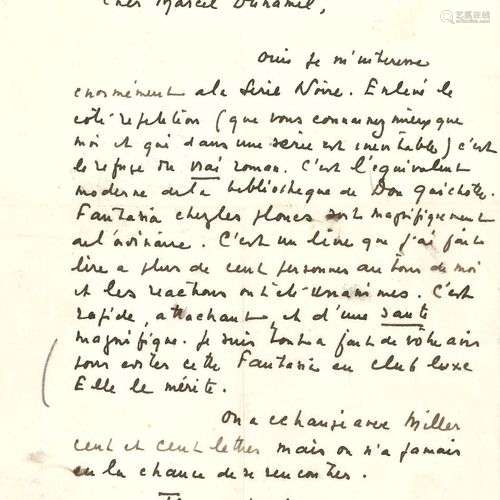 Cher Marcel Duhamel,
Oui je m'interesse
enormément a la Serie Noire. Enlevé le
coté repetition (que vous connaissez mieux que
moi et qui dans une serie est inevitable) c'est
le refuge du vrai roman. C'est l'equivalent
moderne de la bibliotheque de Don Quichotte.
Fantasia chez les ploucs sort magnifiquement
de l'ordinaire. C'est un livre que j'ai fait
lire a plus de cent personnes autour de moi
et les reactions ont été unanimes. C'est
rapide, attachant, et d'une santé
magnifique. Je suis tout a fait de votre avis
pour editer cette Fantasia en club luxe
Elle le mérite.
On a echangé avec Miller
cent et cent lettres mais on n'a jamais
eu la chance de se rencontrer.